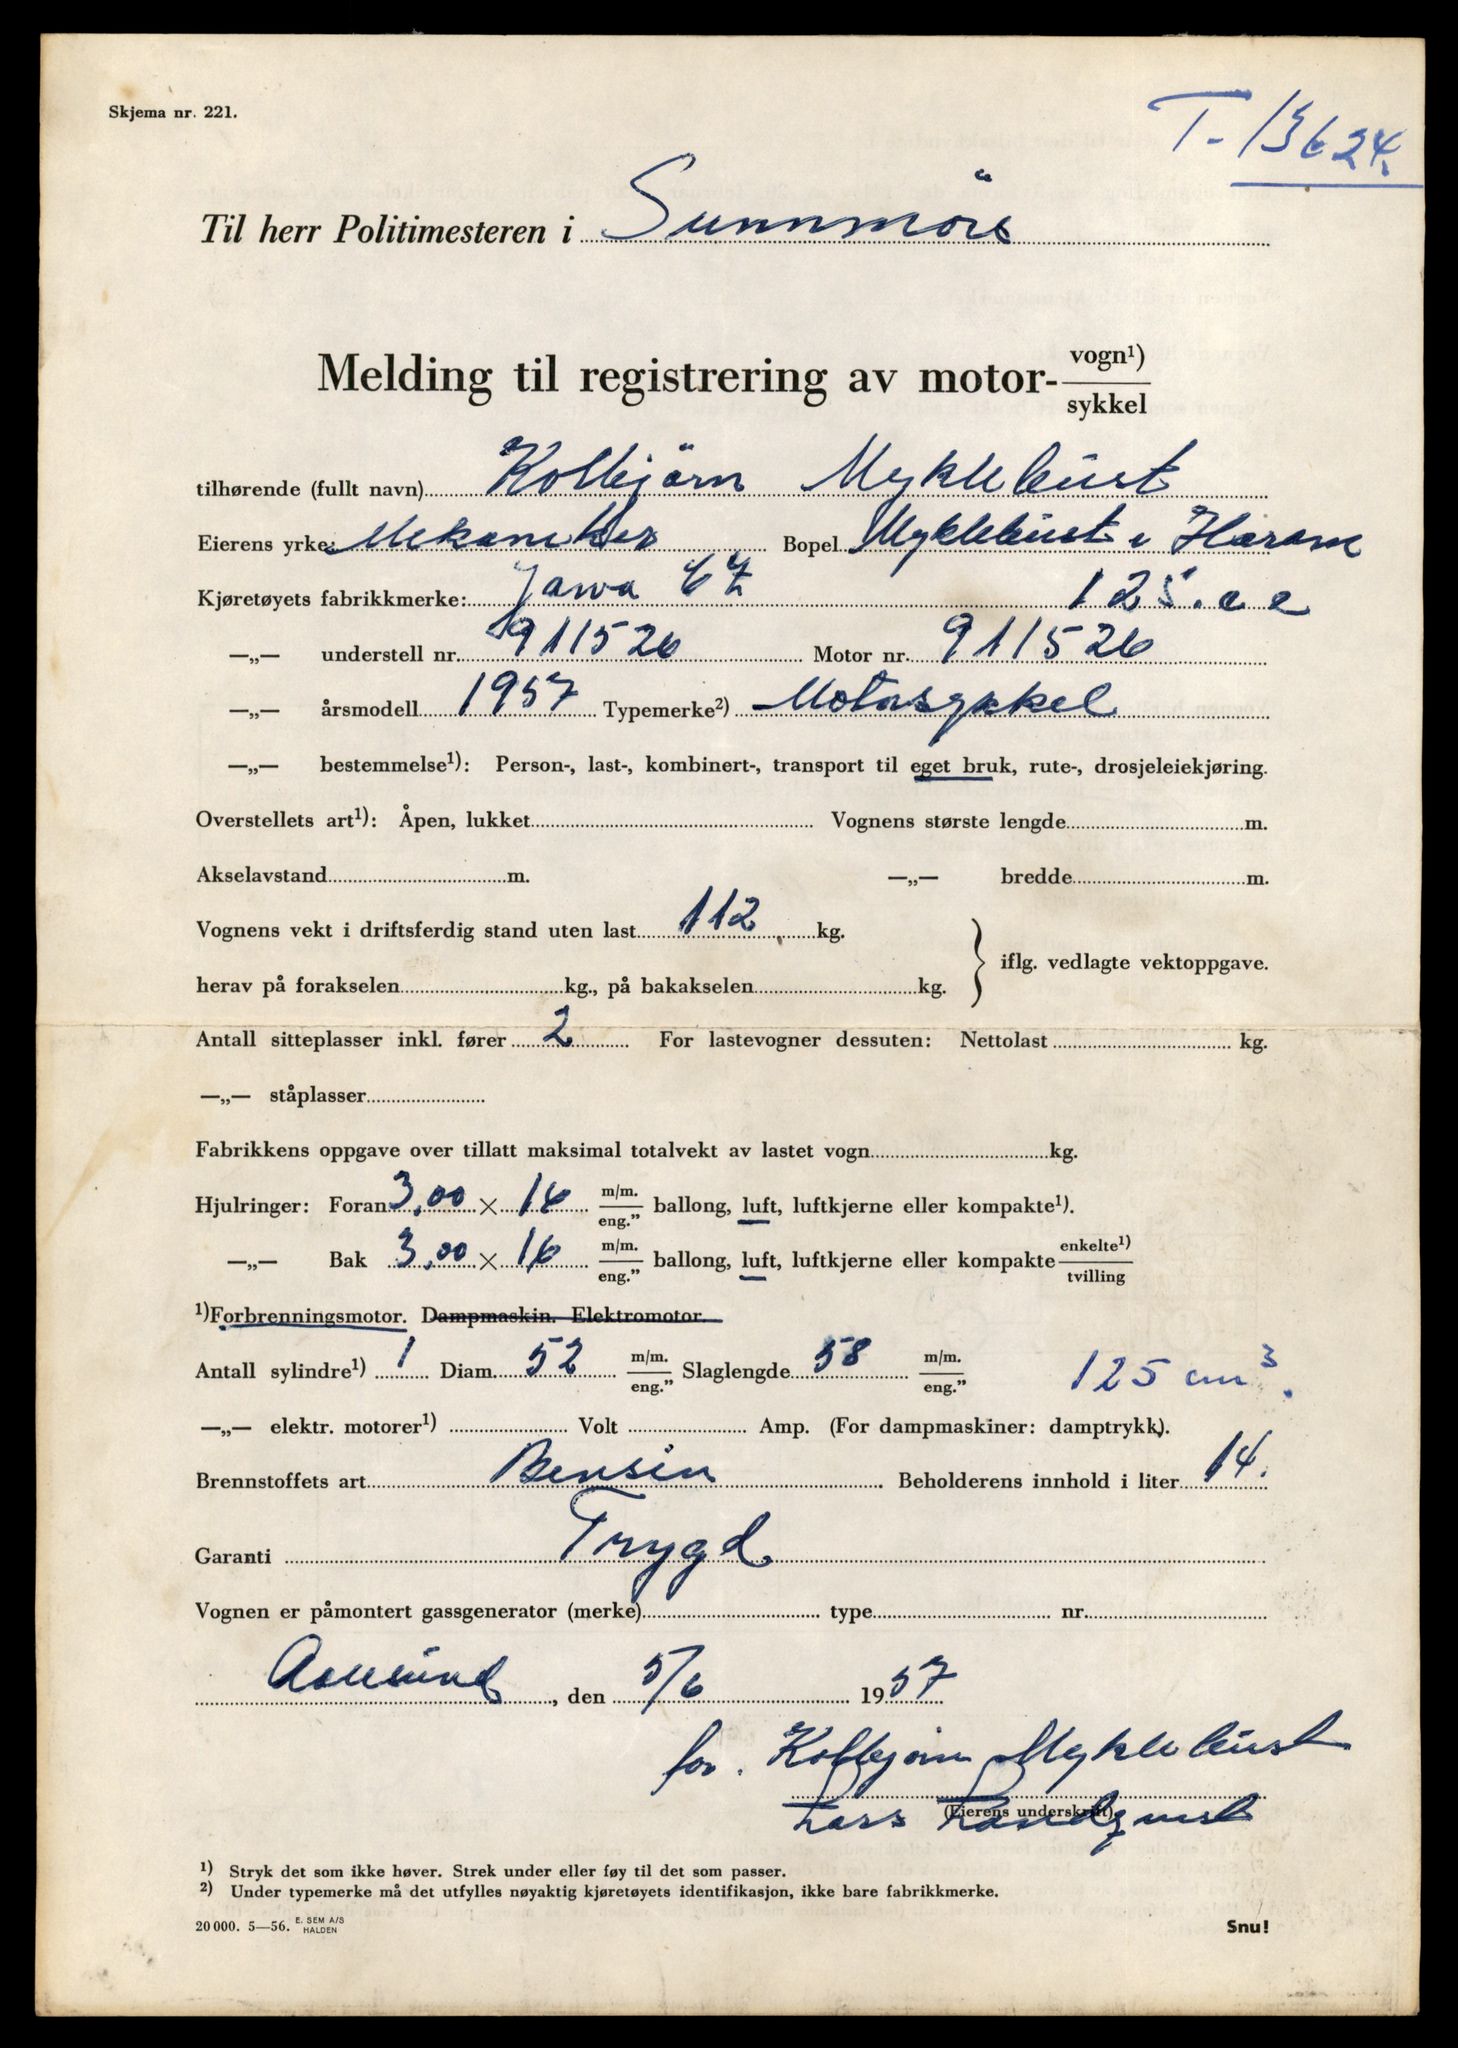 Skjema nr. 221.
T-13624.
Til herr Politimesteren i Sunnmöre
Melding til registrering av motor- vogn¹) / sykkel
tilhørende (fullt navn) Kolbjörn Myklebust
Eierens yrke: Mekaniker Bopel Myklebust i Haram
Kjøretøyets fabrikkmerke: Jawa CZ 125.cc
—„— understell nr. 911526 Motor nr. 911526
—„— årsmodell 1957 Typemerke²) Motorsykkel
—„— bestemmelse¹): Person-, last-, kombinert-, transport til eget bruk, rute-, drosjeleiekjøring.
Overstellets art¹): Åpen, lukket Vognens største lengde m.
Akselavstand m. —„— bredde m.
Vognens vekt i driftsferdig stand uten last 112 kg.
iflg. vedlagte vektoppgave.
herav på forakselen kg., på bakakselen kg.
Antall sitteplasser inkl. fører 2 For lastevogner dessuten: Nettolast kg.
—„— ståplasser
Fabrikkens oppgave over tillatt maksimal totalvekt av lastet vogn kg.
Hjulringer: Foran 3,00 × 16 m/m. / eng.” ballong, luft, luftkjerne eller kompakte¹).
—„— Bak 3,00 × 16 m/m. / eng.” ballong, luft, luftkjerne eller kompakte enkelte¹) / tvilling
¹)Forbrenningsmotor. Dampmaskin. Elektromotor.
Antall sylindre¹) 1 Diam. 52 m/m. / eng.” Slaglengde 58 m/m. / eng.” 125 cm³.
—„— elektr. motorer¹) Volt Amp. (For dampmaskiner: damptrykk).
Brennstoffets art Bensin Beholderens innhold i liter 14.
Garanti Trygd
Vognen er påmontert gassgenerator (merke) type nr.
Aalesund, den 5/6 1957
for. Kolbjörn Myklebust
(Eierens underskrift)
Lars Landquist
¹) Stryk det som ikke høver. Strek under eller føy til det som passer.
²) Under typemerke må det utfylles nøyaktig kjøretøyets identifikasjon, ikke bare fabrikkmerke.
20 000. 5—56. E. SEM A/S HALDEN
Snu!